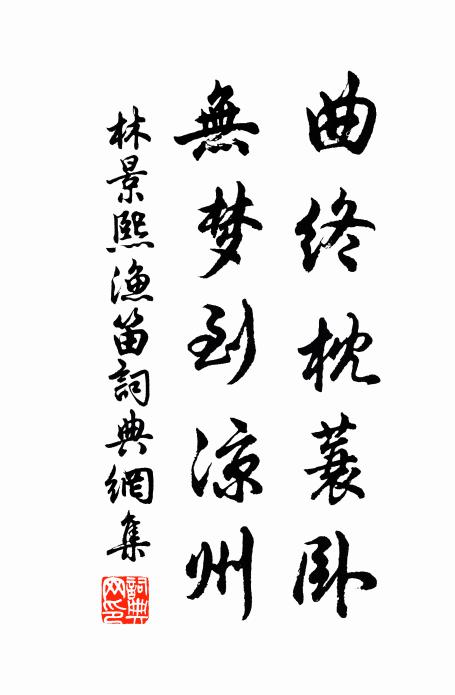 曲终枕蓑卧
無梦到凉州
林景熙漁笛詞典網集
詞典网印